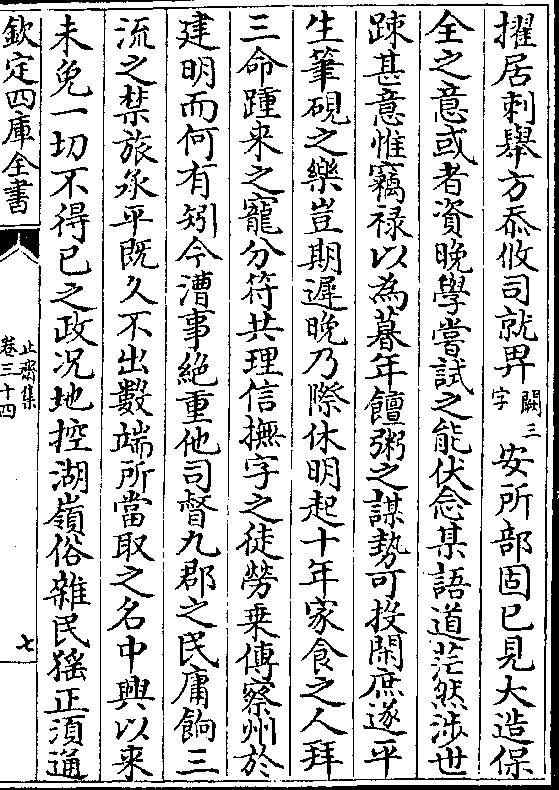 擢居刺舉方忝攸司就畀闕三字安所部固已見大造保
全之意或者資晚學嘗試之能伏念某語道茫然涉世
踈甚意惟竊禄以為暮年饘粥之謀勢可投閑庶遂平
生筆硯之樂豈期遲晚乃際休明起十年家食之人拜
三命踵来之寵分符共理信撫字之徒勞乗傳察州於
建明而何有矧今漕事絶重他司督九郡之民庸餉三
流之禁旅承平既久不出數端所當取之名中興以来
未免一切不得已之政况地控湖嶺俗雜民猺正湏通
欽定四庫全書
止齋集
卷三十四
七